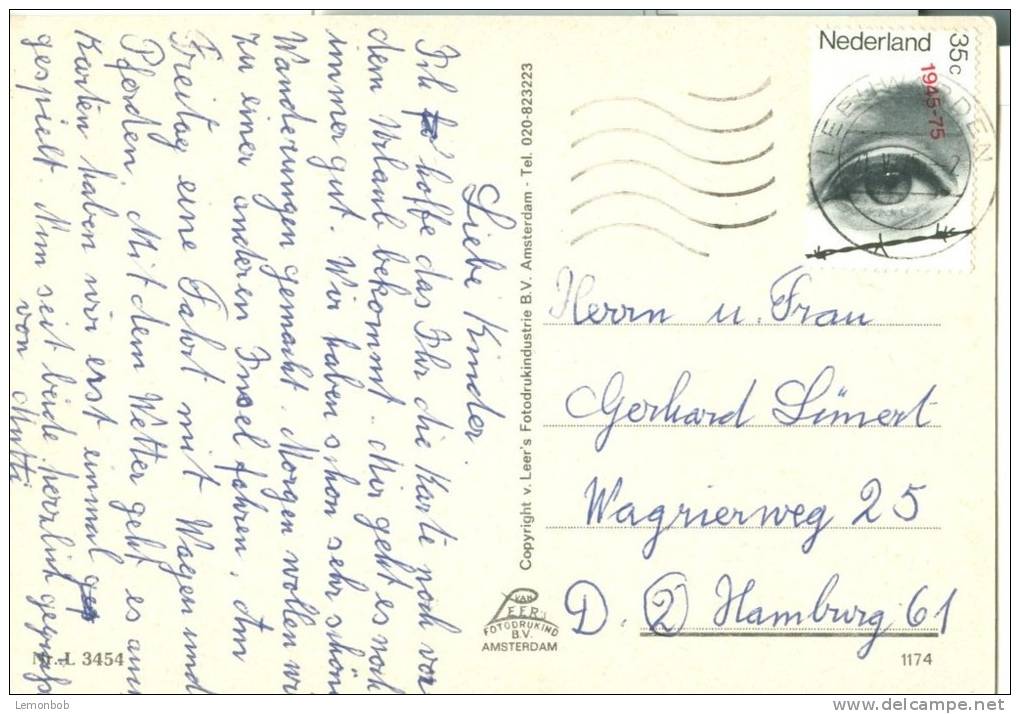 Liebe Kinder.
Ich hoffe das Ihr die Karte noch vor
dem Urlaub bekommt. Mir geht es noch
immer gut. Wir haben schon sehr schöne
Wanderungen gemacht. Morgen wollen wir
zu einer anderen Insel fahren. Am
Freitag eine Fahrt mit Wagen und
Pferden. Mit dem Wetter geht es auch
Karten haben wir erst einmal
gespielt. Nun seit beide herzlich gegrüßt
von Mutti
Nr.-L 3454
Copyright v. Leer's Fotodrukindustrie B.V. Amsterdam - Tel. 020-823223
VAN
LEER'S
FOTODRUKIND
B.V.
AMSTERDAM
Nederland 35c
1945-75
LEEUWARDEN
Herrn u. Frau
Gerhard Lünert
Wagrierweg 25
D. 2 Hamburg 61
1174
Lemonbob
delcampe.net